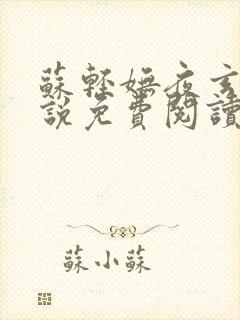 蘇輕嫵夜玄
說免費閱讀
蘇小蘇